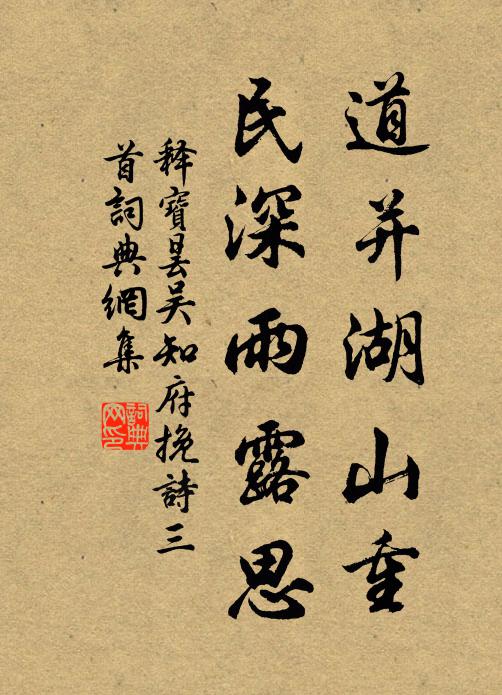 道并湖山重
民深雨露思
释寶昙吴知府挽詩三
首詞典網集
詞典
网印